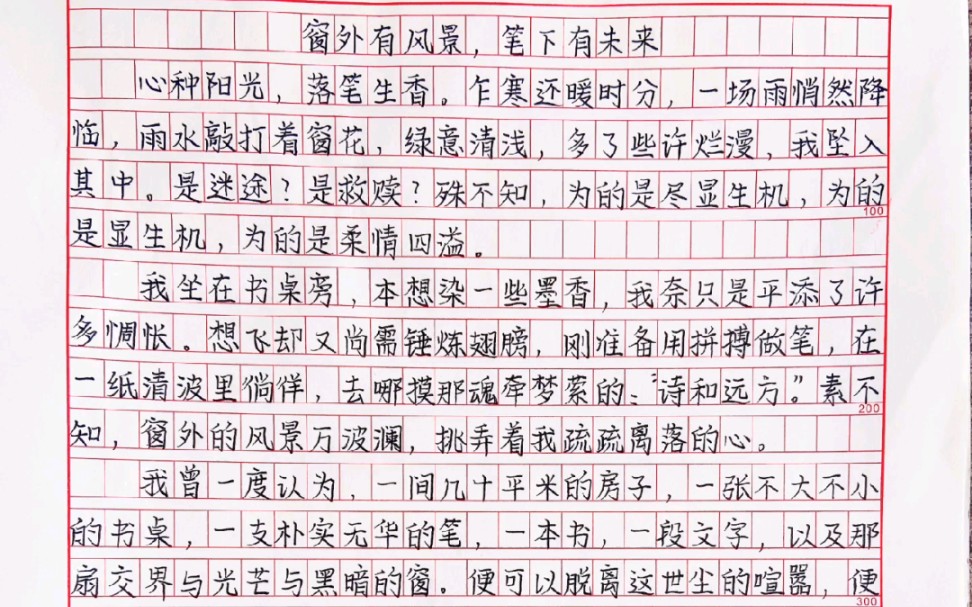 窗外有风景，笔下有未来
心种阳光，落笔生香。乍寒还暖时分，一场雨悄然降
临，雨水敲打着窗花，绿意清浅，多了些许烂漫，我坠入
其中。是迷途？是救赎？殊不知，为的是尽显生机，为的
100
是显生机，为的是柔情四溢。
我坐在书桌旁，本想染一些墨香，我奈只是平添了许
多惆怅。想飞却又尚需锤炼翅膀，刚准备用拼搏做笔，在
一纸清波里倘佯，去哪摸那魂牵梦萦的：“诗和远方。”素不
200
知，窗外的风景万波澜，挑弄着我疏疏离落的心。
我曾一度认为，一间几十平米的房子，一张不大不小
的书桌，一支朴实无华的笔，一本书，一段文字，以及那
扇交界与光芒与黑暗的窗。便可以脱离这世尘的喧嚣，便
300